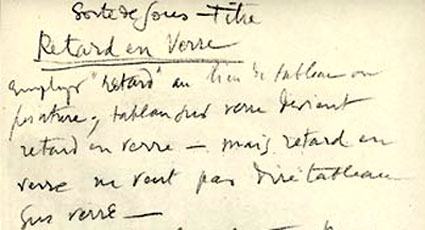 Sorte de Sous-Titre
Retard en Verre
Employer "retard" au lieu de tableau ou
peinture; tableau sur verre devient
retard en verre — mais retard en
verre ne veut pas dire tableau
sur verre —